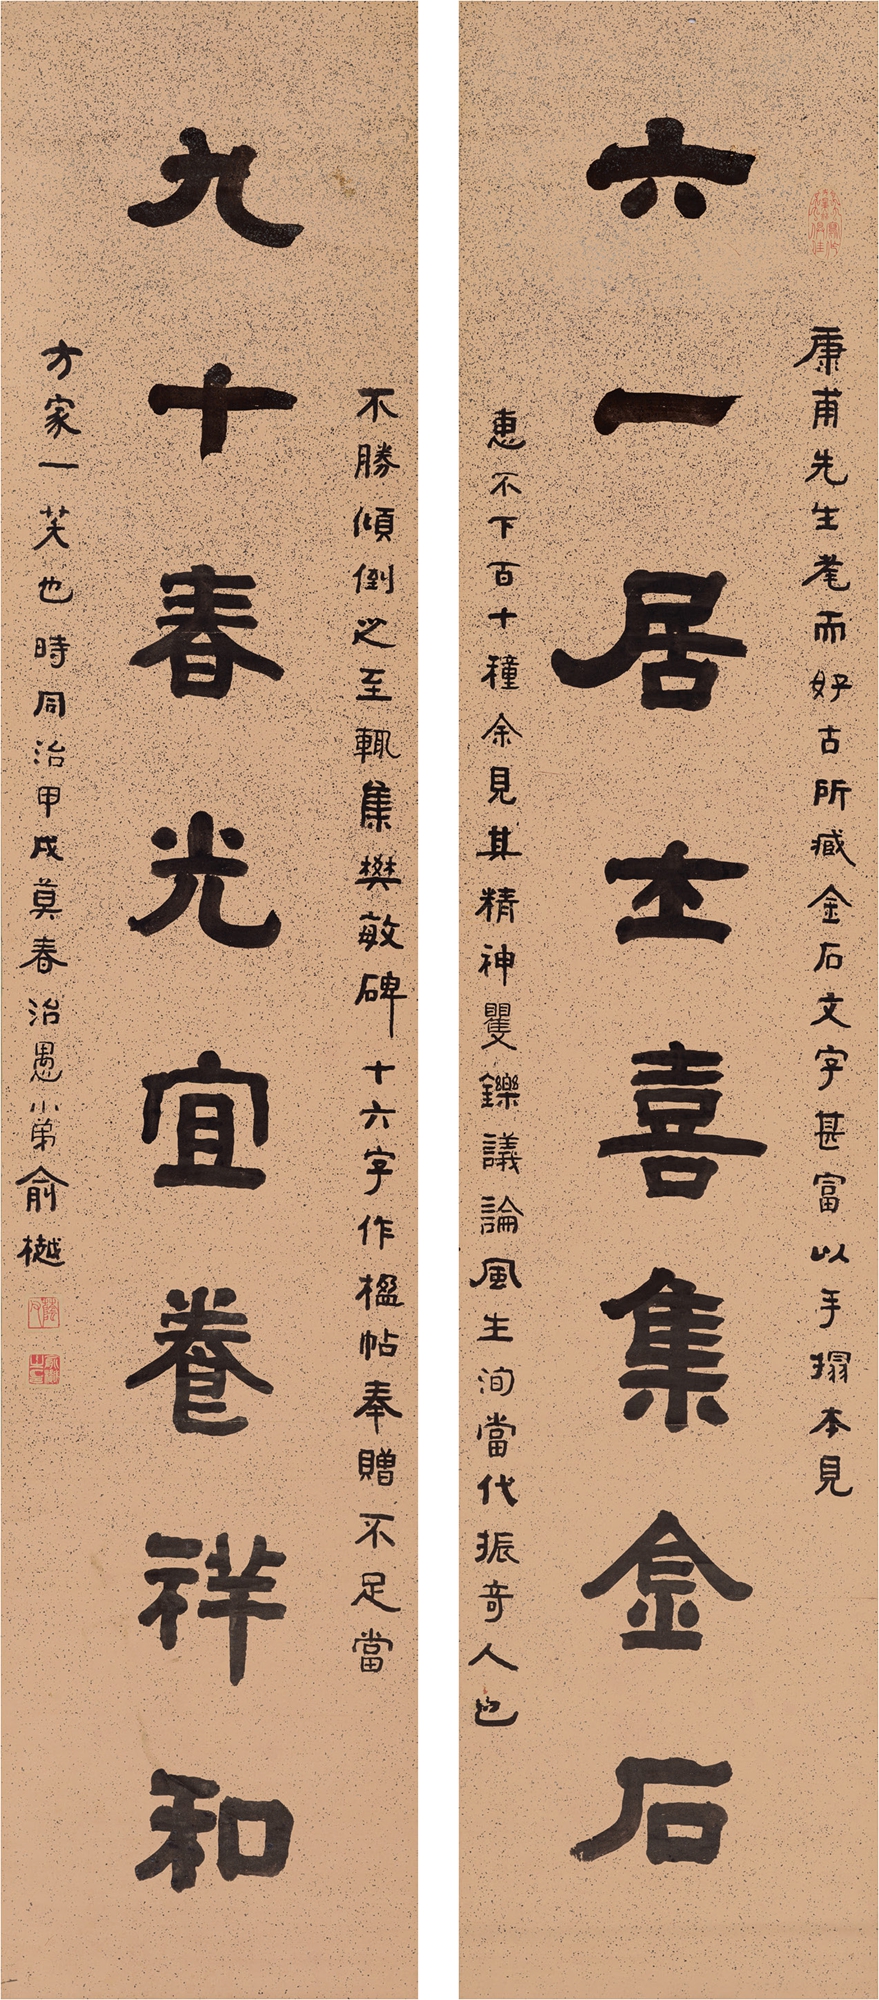 康甫先生耄而好古所臧金石文字甚富以手搨本見
六一居士喜集金石
惠不下百十種余見其精神矍鑠議論風生洵當代振奇人也
不勝傾倒之至輒集樊敏碑十六字作楹帖奉贈不足當
九十春光宜養祥和
方家一笑也時同治甲戌莫春治愚小弟俞樾